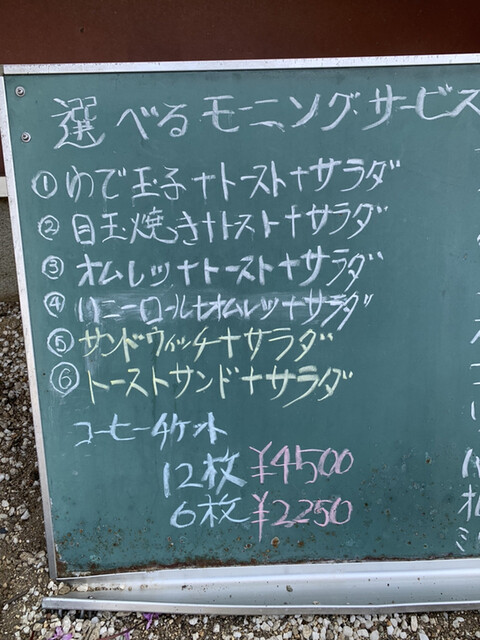 選べるモーニングサービス
①ゆで玉子+トースト+サラダ
②目玉焼き+トスト+サラダ
③オムレツ+トースト+サラダ
④ハニーロール+オムレツ+サラダ
⑤サンドウィッチ+サラダ
⑥トーストサンド+サラダ
コーヒーチケット
12枚¥4500
6枚¥2250